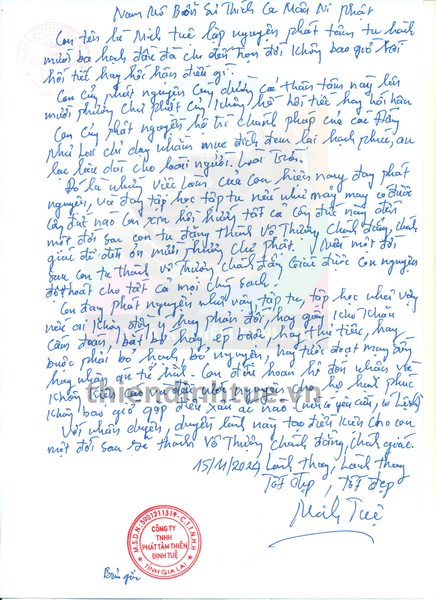 Nam Mô Bổn Sư Thích Ca Mâu Ni Phật
Con tên là Minh Tuệ lập nguyện phát tâm tu hành
mười ba hạnh đầu đà cho đến trọn đời không bao giờ
hối tiếc hay hối hận điều gì.
Con cũng phát nguyện cúng dường cả thân tâm này lên
mười phương chư phật cũng không hề hối tiếc hay hối hận
Con cũng phát nguyện hộ trì chánh pháp của các Đấng
Như Lai chỉ dạy nhằm mục đích đem lại hạnh phúc, an
lạc lâu dài cho loài người. Loài Trời.
Đó là những việc làm của con hiện nay đang phát
nguyện, và đang tập học tập tu nếu như may mắn có được
đức nào con xin hồi hướng tất cả đức này đến
một đời sau con tu đặng thành Vô Thượng Chánh đẳng, chánh
giác để đền ơn mười phương chư phật. Nếu một đời
sau con tu thành vô Thượng chánh đẳng Giác được con nguyện
độ thoát cho tất cả mọi chú sanh.
Con đang phát nguyện như vậy, tập tu, tập học như vậy
nếu ai không đồng ý hay phản đối, hay gây khó khăn
cấm đoán, bắt bớ hay ép buộc, hay thủ tiêu, hay
buộc phải bỏ hạnh, bỏ nguyện, hay tước đoạt mạng sống
hay nhận án tù hình. Con đều hoan hỉ đón nhận và
không oán và cầu nguyện cho họ hạnh phúc
không bao giờ gặp điều xấu ác nào
Với nhân duyên, duyên lành này tạo điều kiện cho con
một đời sau sẽ thành Vô Thượng Chánh đẳng, Chánh giác.
15/11/2024 Lành thay, Lành thay
Tốt đẹp, Tốt đẹp
Minh Tuệ
thiendinhtue.vn
M.S.D.N: 5901211319 - C.T.T.N.H.H
CÔNG TY
TNHH
PHÁT TÂM THIỀN
ĐỊNH TUỆ
TỈNH GIA LAI
Bản gốc